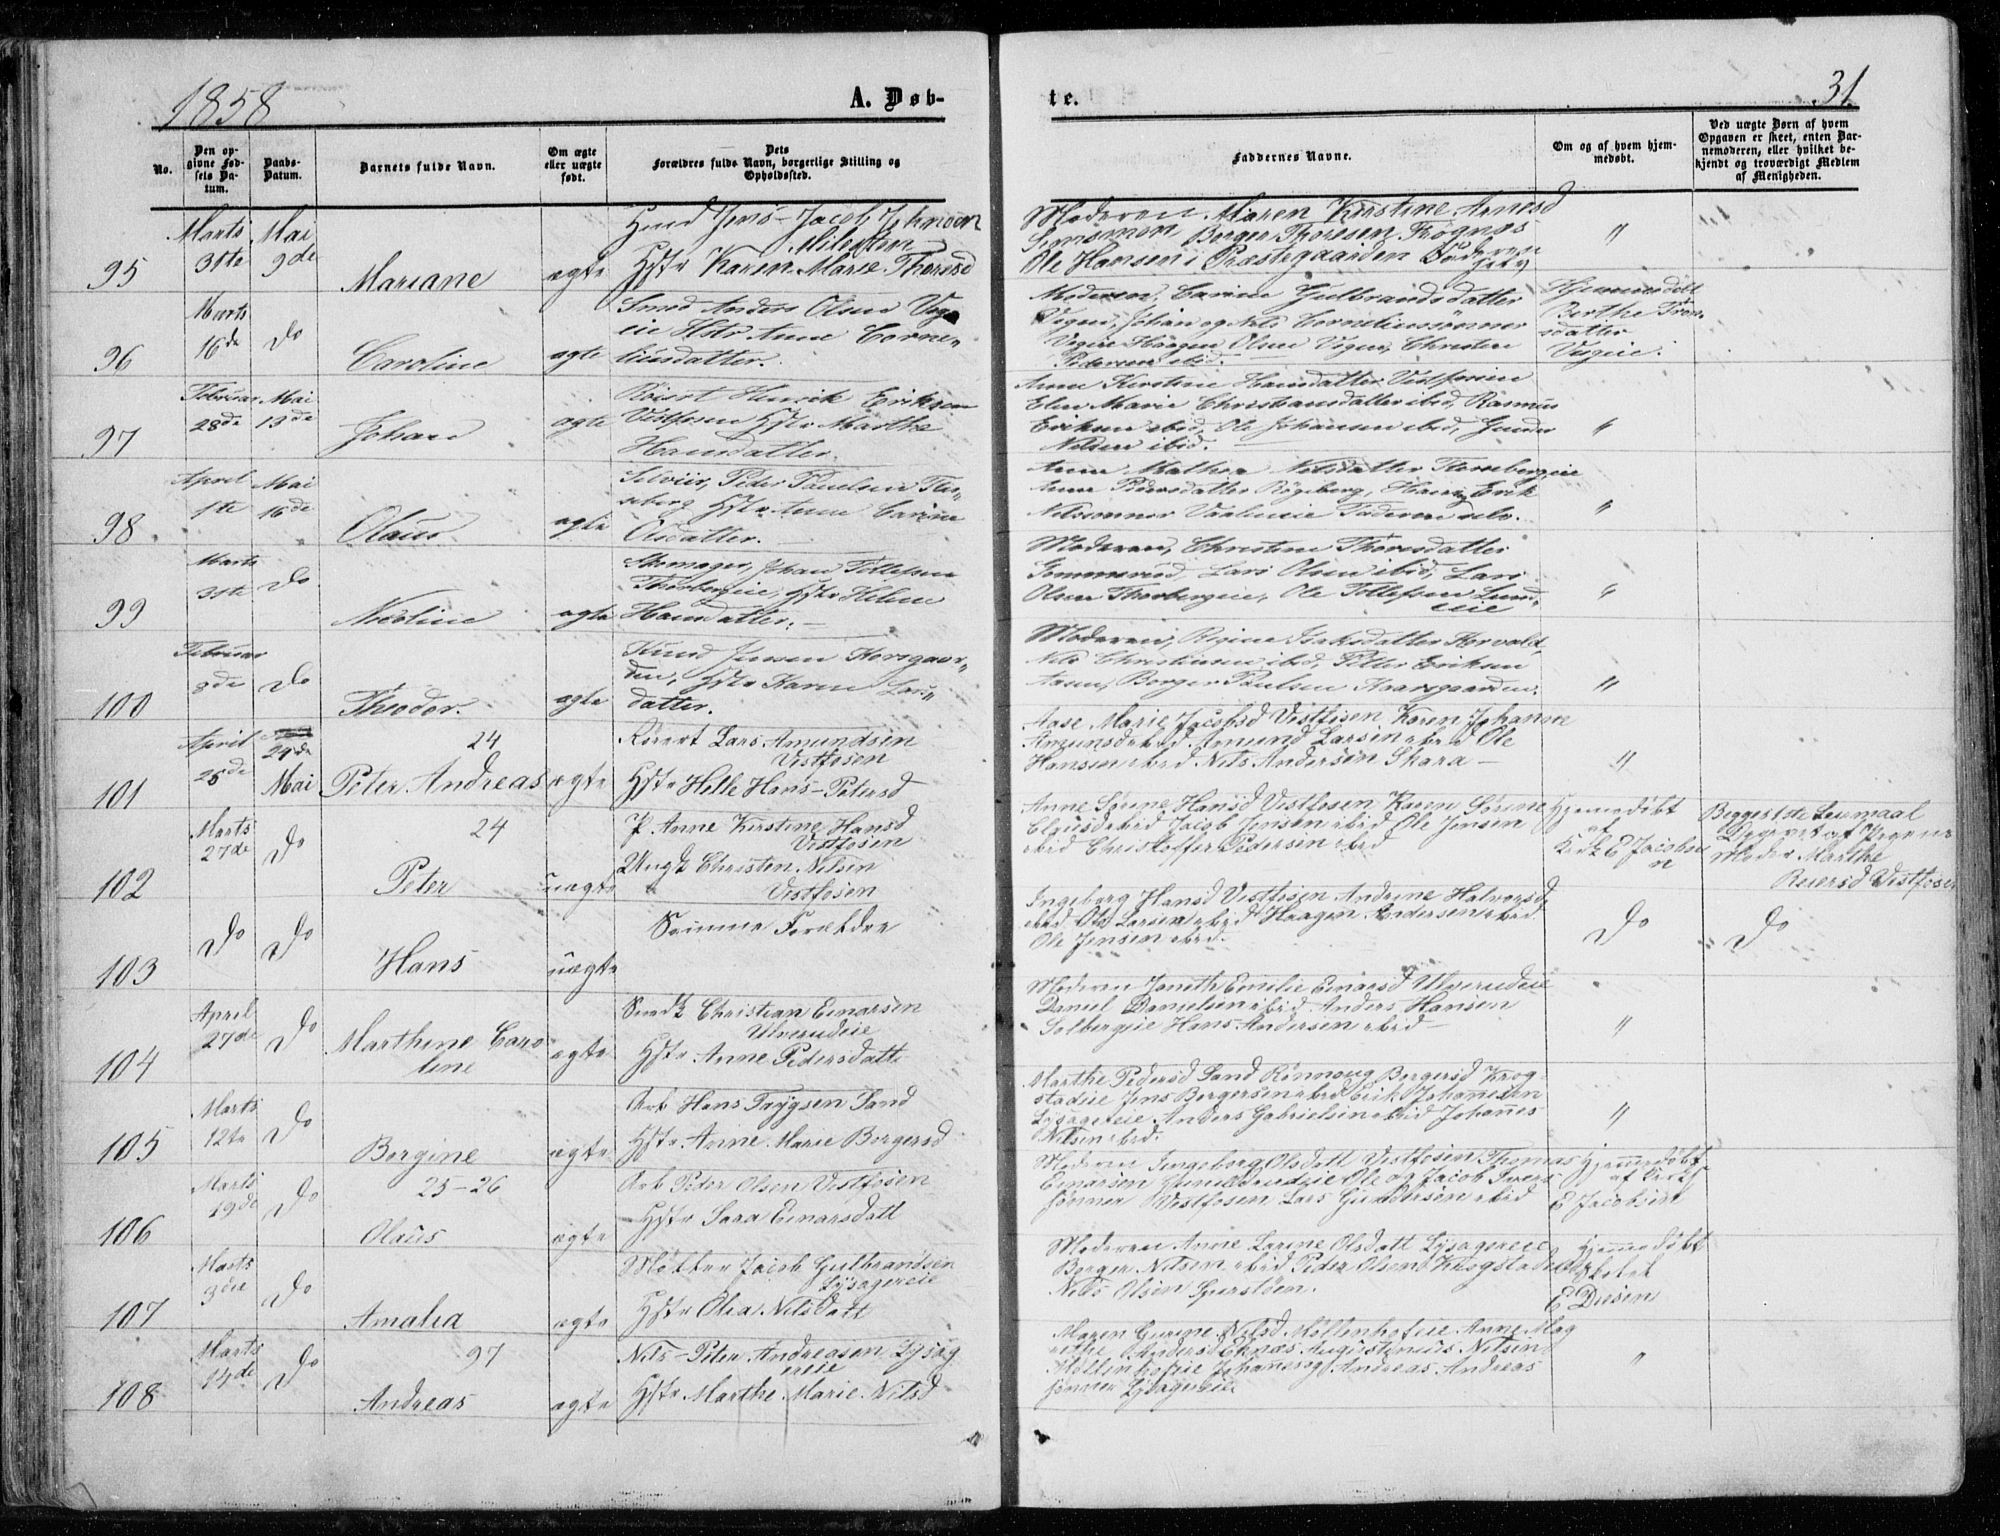 1858
A. Døb-
te.
31
No.
Den op-
givne Fød-
sels Da-
tum.
Daabs-
Datum.
Barnets fulde Navn.
Om ægte
eller uægte
født.
Dets
Forældres fulde Navn, borgerlige Stilling og
Opholdssted.
Faddernes Navne.
Om og af hvem hjem-
medøbt.
Ved uægte Børn af hvem
Opgaven er skeet, enten Bar-
nemoderen, eller hvilket be-
kjendt og troværdigt Medlem
af Menigheden.
95
Marts
31te
Mai
9de
Mariane
ægte
Jens-Jacob Johnsen
Hstr Karen Marie Thoresd
Moderen Maren Kirstine Arnesd
Borger Thoresen Frognæs
Ole Hansen i Præstegaarden
"
96
Marts
16de
Do
Caroline
ægte
Smed Anders Olsen
Hstr Anne Corne-
liusdatter.
Moderen, Carine Gulbrandsdatter
Johan og Nils Corneliussønner
Jørgen Olsen Christen
Pedersen ibid.
Hjemmedøbt
Berthe
datter
97
Februar
28de
Mai
13de
Johan
ægte
Røiert Henrik Eriksen
Vestfosen Hstr Marthe
Hansdatter.
Anne Kirstine Hansdatter Vestfosen
Elen Marie Christiansdatter ibid, Rasmus
Eriksen ibid, Ole Johansen ibid, Gunder
Nilsen ibid.
"
98
April
1te
Mai
16de
Olaus
ægte
Peder Paulsen
Hstr Anne Carine
Olsdatter.
Anne Mathea Nilsdatter
Anne Pedersdatter Røgeberg, Hans, Erik
Nilssønner Faderen selv.
"
99
Marts
31te
Do
Nicoline
ægte
Skomager, Johan Tollefsen
Thorbergeie, Hstr Helene
Hansdatter.
Moderen, Christine Thoresdatter
Lars Olsen ibid, Lars
Olsen Thorbergeie, Ole Tollefsen Lund-
eie
"
100
Februar
8de
Do
Theodor.
ægte
Knud Jensen Korsgaar-
den, Hstr Karen Lars-
datter.
Moderen, Regine Isaksdatter
Nils Christiansen ibid, Peter Eriksen
Borger Paulsen
"
101
April
25de
24de
Mai
24
Peter Andreas
ægte
Røiert Lars Amundsen
Vestfosen
Hstr Helle Hans-Petersd
Aase Marie Jacobsd Vestfosen Karen Johanne
Amundsd ibid Amund Larsen ibid Ole
Hansen ibid Nils Andersen Skara
"
102
Marts
27de
Do
24
Peter
uægte
P. Anne Kirstine Hansd
Vestfosen
Ungk Christen Nilsen
Vestfosen
Anne Sørine Hansd Vestfosen Karen Sørine
ibid Jacob Jensen ibid Ole Jensen
ibid Christoffer Pedersen ibid
Hjemmedøbt
af
E Jacobse
n
Begges 1ste Leiermaal
Opgivet af Pigens
Moder Marthe
Reiersd Vestfosen
103
Do
Do
Hans
uægte
Samme Forældre
Ingeborg Hansd Vestfosen Andrine Halvorsd
ibid Ole Larsen ibid Haagen Andersen ibid
Ole Jensen ibid.
Do
Do
104
April
27de
Do
Marthine Caro
line
ægte
Smdk Christian Einarsen
Ulverudeie
Hstr Anne Pedersdatt
Moderen Janeth Emilie Einarsd Ulverudeie
Daniel Danielsen ibid Anders Hansen
Solbergeie Hans Andersen ibid
"
105
Marts
12te
Do
Bergine
ægte
Arb Hans Trygsen Sand
Hstr Anne Marie Borgersd
Marthe Pedersd Sand Rønnoug Borgersd Krog
stadeie Jens Borgersen ibid Erik Johannesen
Lysagereie Anders Gabrielsen ibid Johanes
Nilsen ibid.
"
106
Marts
19de
Do
25-26
Olaus
ægte
Arb Peder Olsen Vestfosen
Hstr Sara Einarsdatt
Moderen Ingeborg Olsdatt Vestfosen Thomas
Einarsen Ole og Jacob Ivers
sønner Vestfosen Lars Gundersen ibid
Hjemmedøbt
af
E Jacobsen
107
Marts
3die
Do
Amalia
ægte
Møller Jacob Gulbrandsen
Lysagereie
Hstr Olea Nilsdatt
Moderen Anne Larine Olsdatt Lysagereie
Borger Nilsen ibid Peder Olsen Krogstadeie
Nils Olsen
Hjemmedøbt
E Diesen
108
Marts
14de
Do
97
Andreas
ægte
Nils-Peter Andreasen Lysag
ereie
Hstr Marthe Marie Nilsd
Maren Gurine Nilsd Møllenhofeie Anne Mag
rethe Andersd Augustinus Nilsen
Møllenhofeie Johannes og Andreas Andreas
sønner Lysagereie
"